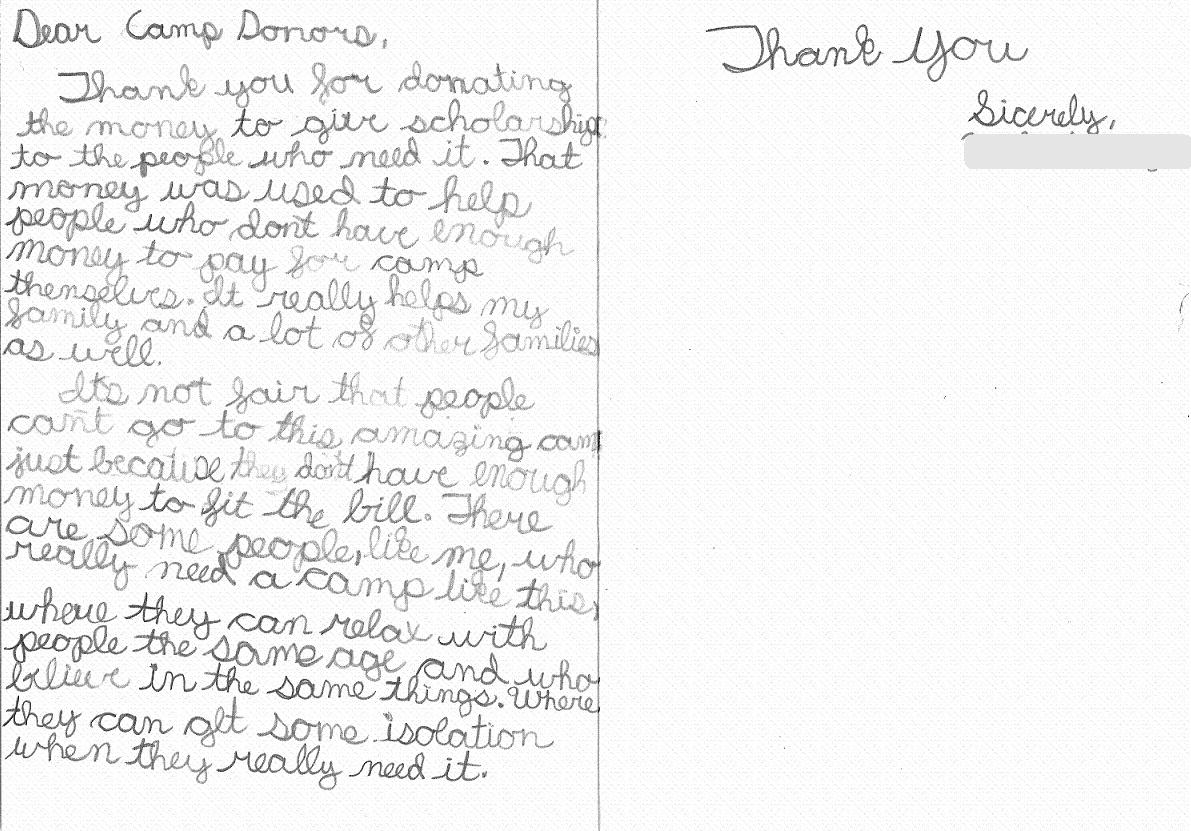 Dear Camp Donors,
Thank you for donating
the money to give scholarships
to the people who need it. That
money was used to help
people who dont have enough
money to pay for camp
themselves. It really helps my
family and a lot of other families
as well.
Its not fair that people
can't go to this amazing camp
just because they don't have enough
money to fit the bill. There
are some people, like me, who
really need a camp like this,
where they can relax with
people the same age and who
believe in the same things. Where
they can get some isolation
when they really need it.
Thank You
Sicerely,